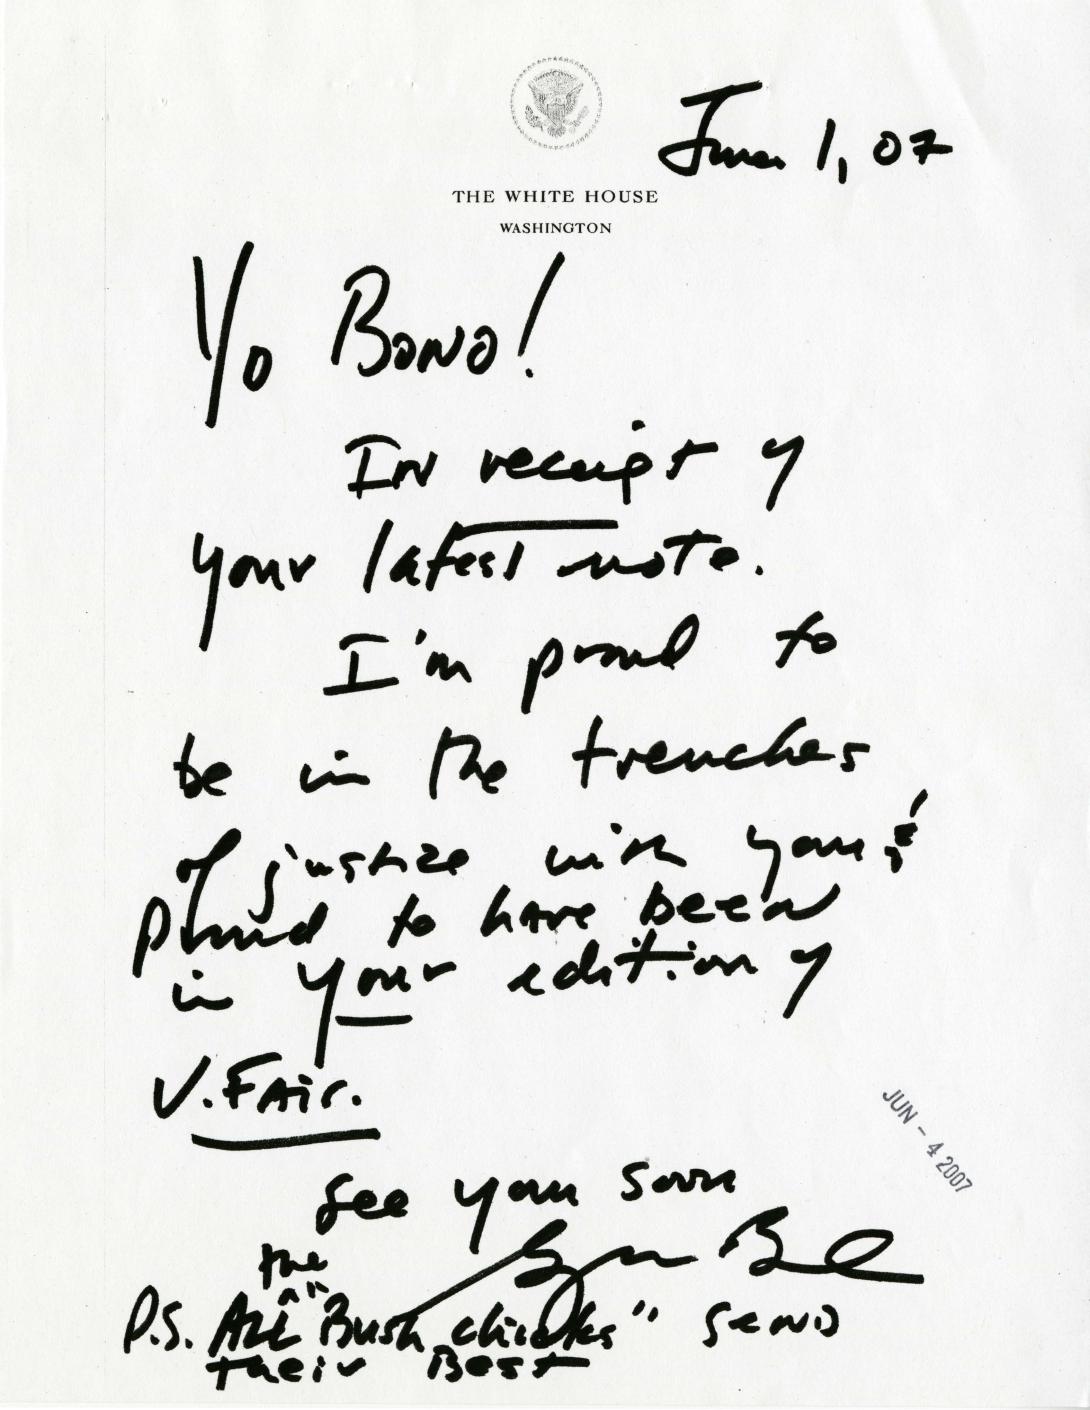 June 1, 07
THE WHITE HOUSE
WASHINGTON
Yo Bono!
In receipt of
your latest note.
I'm proud to
be in the trenches
of justice with you &
proud to have been
in your edition of
V. FAir.
JUN - 4 2007
See you soon
George Bush
the
P.S. All "Bush chicks" send
their Best